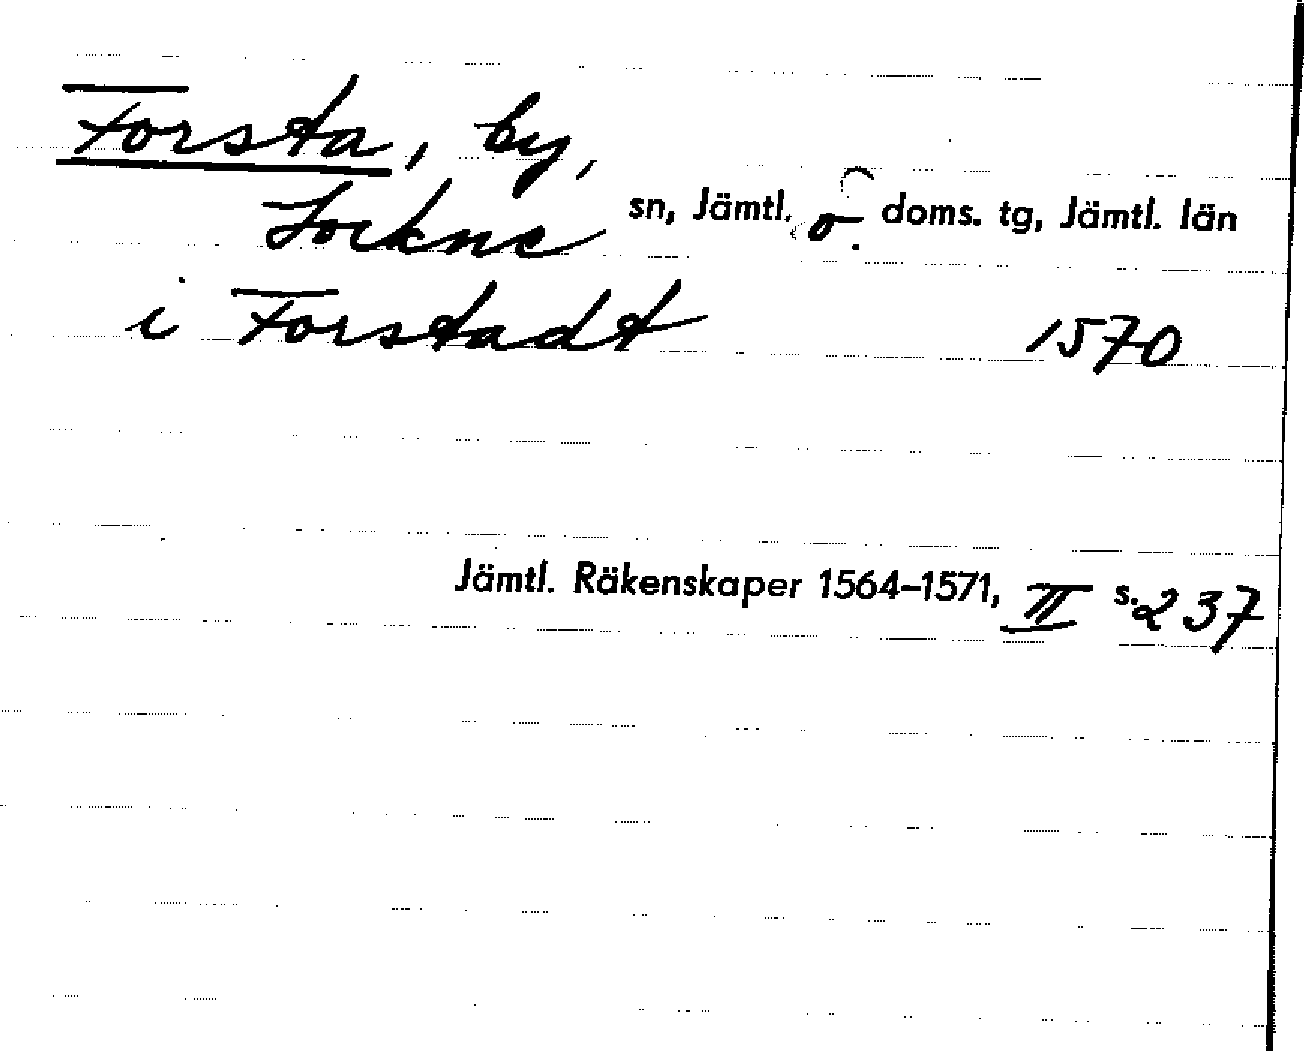 Forsta, by,
Lockne sn, Jämtl. ö. doms. tg, Jämtl. län
i Forstadt 1570
Jämtl. Räkenskaper 1564–1571, II s. 237